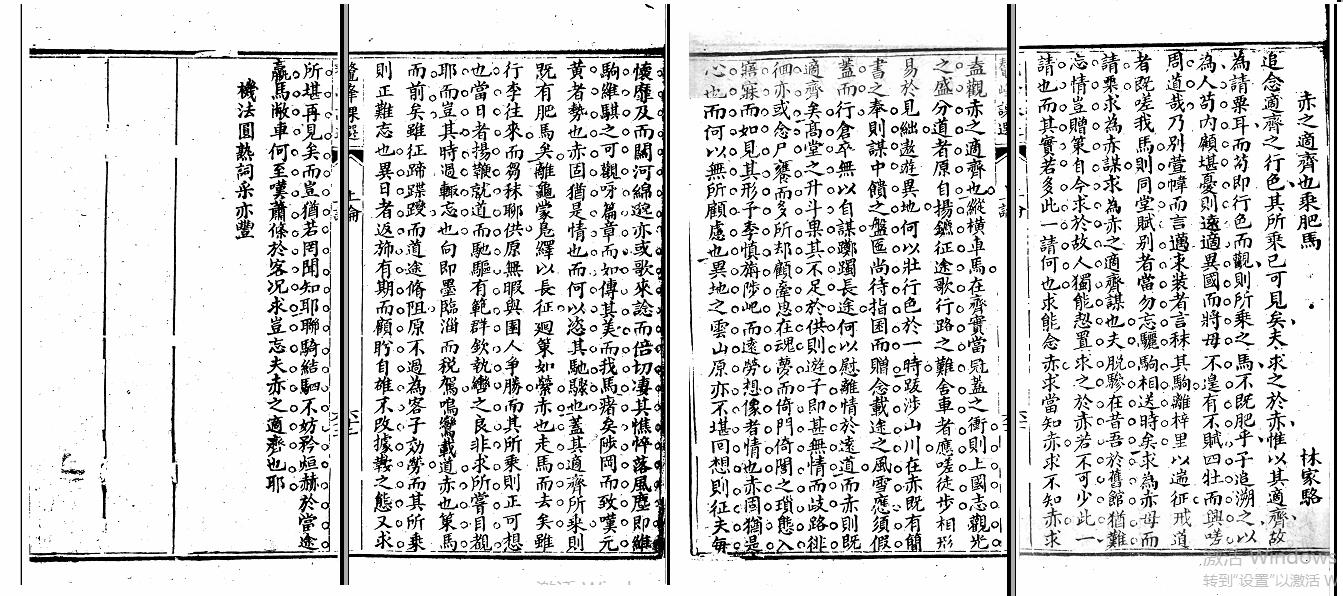 赤之適齊也乘肥馬　林家駱
追念適齊之行色其所乘已可見矣夫求之於赤惟以其適齊故
為請粟耳而苟即行色而觀則所乘之馬不既肥乎子追溯之以
為人苟內顧堪憂則遠適異國而將母不遑有不賦四牡而興嗟
周道哉乃別萱幃而言邁求裝者言秣其駒離梓里以遄征戒道
者既嗟我馬則同堂賦别者當勿忘驪駒相送時矣求為赤母而
請粟求為赤謀求為赤之適齊謀也夫脫驂在昔吾於舊館猶難
忘情豈贈策自今求於故人獨能恝置求之於赤若不可少此一
請也而其實若多此一請何也求能念赤求當知赤求不知赤求
盍觀赤之適齊也縱橫車馬在齊實當冠蓋之衝則上國志觀光
之盛分道者原自揚鑣征途歌行路之難舍車者應嗟徒步相形
易於見絀遨遊異地何以壯行色於一時跋涉山川在赤既有簡
書之奉則謀中饋之盤匜尚待指囷而贈念載途之風雪應須假
蓋而行倉卒無以自謀躑躅長途何以慰離情於遠道而赤則既
適齊矣高堂之升斗果其不足於供則遊子即甚無情而歧路徘
徊亦或念尸饔而多所却顧牽思在魂夢而倚門倚閭之瑣態入
寤寐而如見其形子季慎旃陟屺而遠勞想像者情也赤固猶是
心也而何以無所顧慮也異地之雲山原亦不堪回想則征夫每
懷靡及而關河綿邈亦或歌來諗而倍切凄其憔悴落風塵即維
駒維騏之可觀呼篇章而如傳其美而我馬瘏矣陟岡而致嘆元
黃者勢也赤固猶是情也而何以恣其馳驟也蓋其適齊所乘則
既有肥馬矣離龜蒙鳧繹以長征迴如縈赤也走馬而去矣雖
行李往來而芻秣聊供原無暇與圉人爭勝而其所乘則正可想
也當日者揚鞭就道而馳驅有範群欽執轡之良非求所嘗目覩
耶而豈其時過輒忘也向即墨臨淄而稅駕鳴鸞載道赤也策馬
而前矣雖征蹄蹀躞而道途脩阻原不過為客子効勞而其所乘
則正難忘也異日者返旆有期而顧盼自雄不改據鞍之態又求
鼇峰課選
上論
所堪再見矣而豈猶若罔聞知耶聯騎結駟不妨矜烜赫於當途
羸馬敝車何至嘆蕭條於客况求豈忘夫赤之適齊也耶
機法圓熟詞采亦豐
激活 Windows
转到"设置"以激活 W